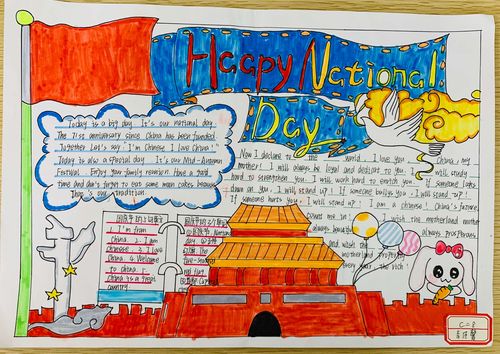 Happy National
Day!
Today is a big day. It's our national day.
The 71st anniversary since China has been founded.
Together Let's say, I'm Chinese I love China!
Today is also a special day. It's our Mid-Autumn
Festival. Enjoy your family reunion. Have a good
time and don't forget to eat some moon cakes because
This is our tradition.
Now I declare to the world. I love you China, my
mother. I will always be loyal and dedicate to you. I will study
hard to strengthen you. I will work hard to enrich you. If someone looks
down on you, I will stand up! If someone bullies you I will stand up!
If someone hurts you I will stand up! I am a chinese China's future
me in! I wish the motherland mother
always beautiful always prosperous
and wish the
motherland prosperity
the rich!
1. I'm from
China. 2. I am
Chinese. 3. I love
China. 4. Welcome
to China. 5.
China is a great
country.
National
day
The
five-starred
red flag.
C=8